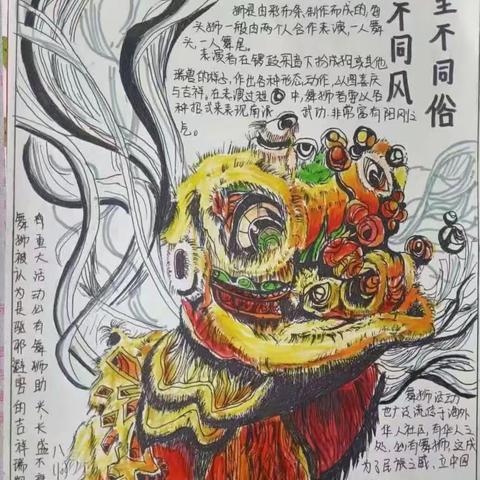 里不同俗
不同风
狮是由彩布条制作而成的,每
头狮一般由两个人合作表演,一人舞
头,一人舞尾。
表演者在锣鼓乐下扮成狮或其他
瑞兽的样子,作出各种形态动作,以图喜庆
与吉祥,在表演过程中,舞狮者要以各
种招式来表现南派武功,非常富有阳刚之
气。
有重大活动必有舞狮助兴,长盛不衰
舞狮被认为是驱邪避害的吉祥瑞
舞狮活动
也广泛流传于海外
华人社区,有华人之
处,必有舞狮,这成
为了民族之或、立中国